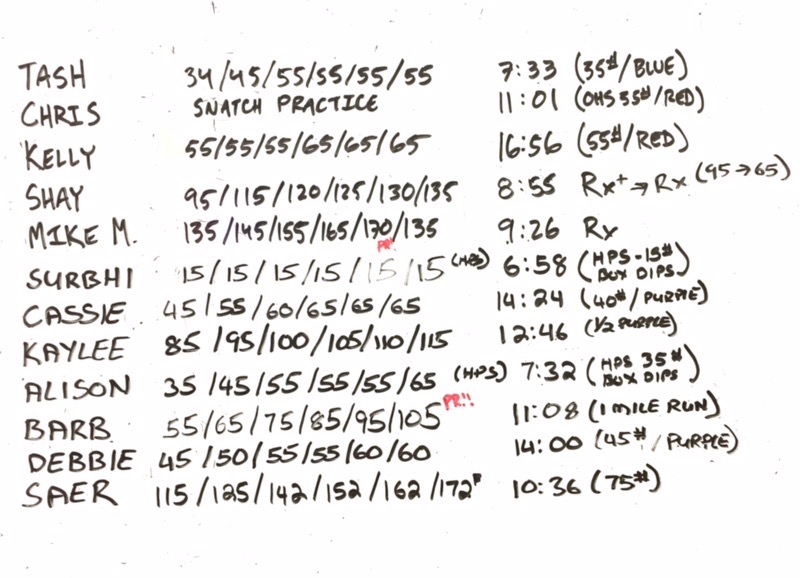 TASH 34/45/55/55/55/55 7:33 (35#/BLUE)
CHRIS SNATCH PRACTICE 11:01 (OHS 55#/RED)
KELLY 55/55/55/65/65/65 16:56 (55#/RED)
SHAY 95/115/120/125/130/135 8:55 Rx+→Rx (95→65)
MIKE M. 135/145/155/165/170/135 9:26 Rx
PR!
SURBHI 15/15/15/15/15/15 (HPS) 6:58 (HPS-15# BOX DIPS)
CASSIE 45/55/60/65/65/65 14:24 (40#/PURPLE)
KAYLEE 85/95/100/105/110/115 12:46 (1/2 PURPLE)
ALISON 35/45/55/55/55/65 (HPS) 7:32 (HPS 35# BOX DIPS)
BARB 55/65/75/85/95/105 PR!! 11:08 (1 MILE RUN)
DEBBIE 45/50/55/55/60/60 14:00 (45#/PURPLE)
SAER 115/125/142/152/162/172F 10:36 (75#)